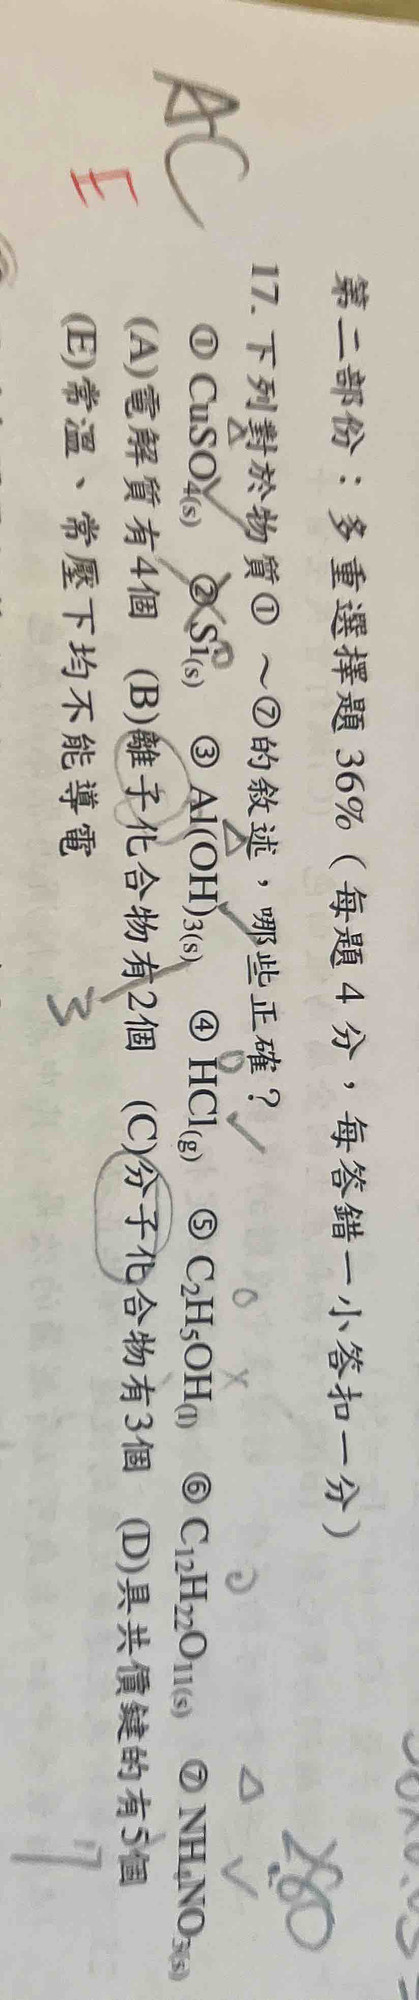 第二部份：多重選擇題 36%（每題 4 分，每答錯一小答扣一分）
AC 17. 下列對於物質① ～⑦的敘述，哪些正確？
① CuSO4(s) ② Si(s) ③ Al(OH)3(s) ④ HCl(g) ⑤ C2H5OH(l) ⑥ C12H22O11(s) ⑦ NH4NO3(s)
(A)電解質有4個 (B)離子化合物有2個 (C)分子化合物有3個 (D)具共價鍵的有5個
(E)常溫、常壓下均不能導電
E
3
7